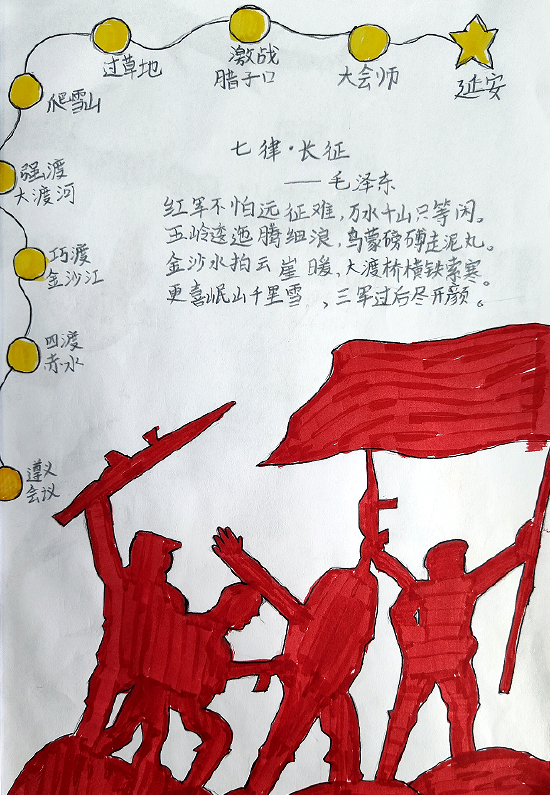 过草地
激战
腊子口
大会师
延安
爬雪山
强渡
大渡河
巧渡
金沙江
四渡
赤水
遵义
会议
七律·长征
——毛泽东
红军不怕远征难,万水千山只等闲。
五岭逶迤腾细浪,乌蒙磅礴走泥丸。
金沙水拍云崖暖,大渡桥横铁索寒。
更喜岷山千里雪,三军过后尽开颜。